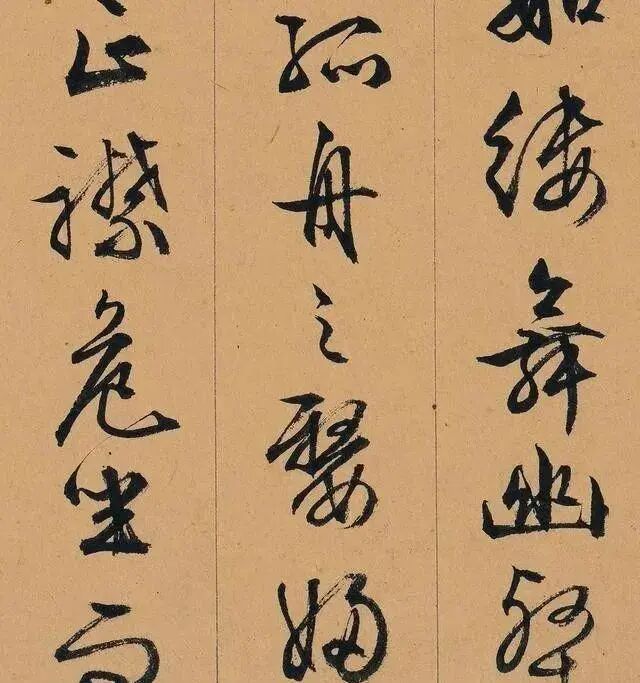 如縷舞幽壑
孤舟之嫠婦
正襟危坐而